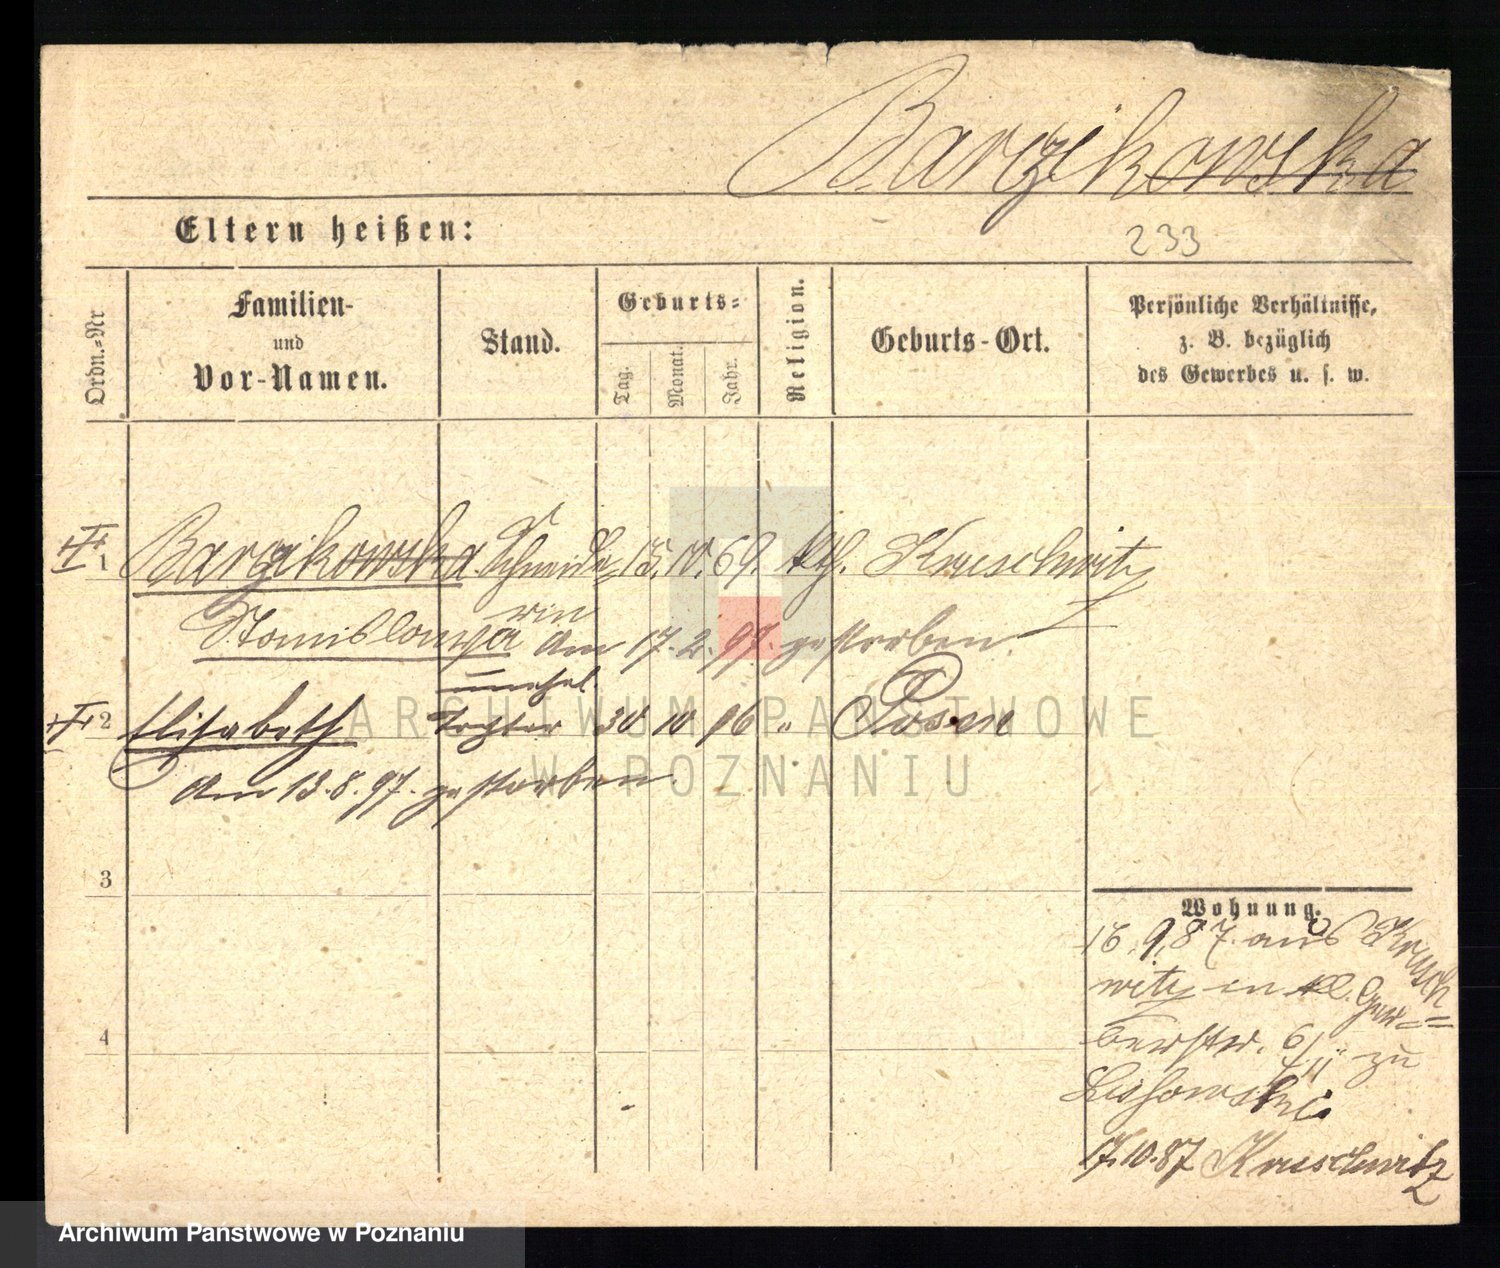 Barzikowska
Eltern heißen:
233
Ordn.-Nr
Familien-
und
Vor-Namen.
Stand.
Geburts-
Tag.
Monat.
Jahr.
Religion.
Geburts-Ort.
Persönliche Verhältnisse,
z. B. bezüglich
des Gewerbes u. s. w.
1 Barzikowska Schneide= 15. 10. 69. kth. Kruschwitz
Stanislawa rin am 17.2.97. gestorben.
unehel.
2 Elisabeth Tochter 30 10 96 " Posen
am 13.8.97. gestorben.
3
4
Wohnung.
15.9.87. aus Krusch=
witz in kl. Ger=
berstr. 6/II zu
17.10.87 Kruschwitz
ARCHIWUM PAŃSTWOWE
W POZNANIU
Archiwum Państwowe w Poznaniu